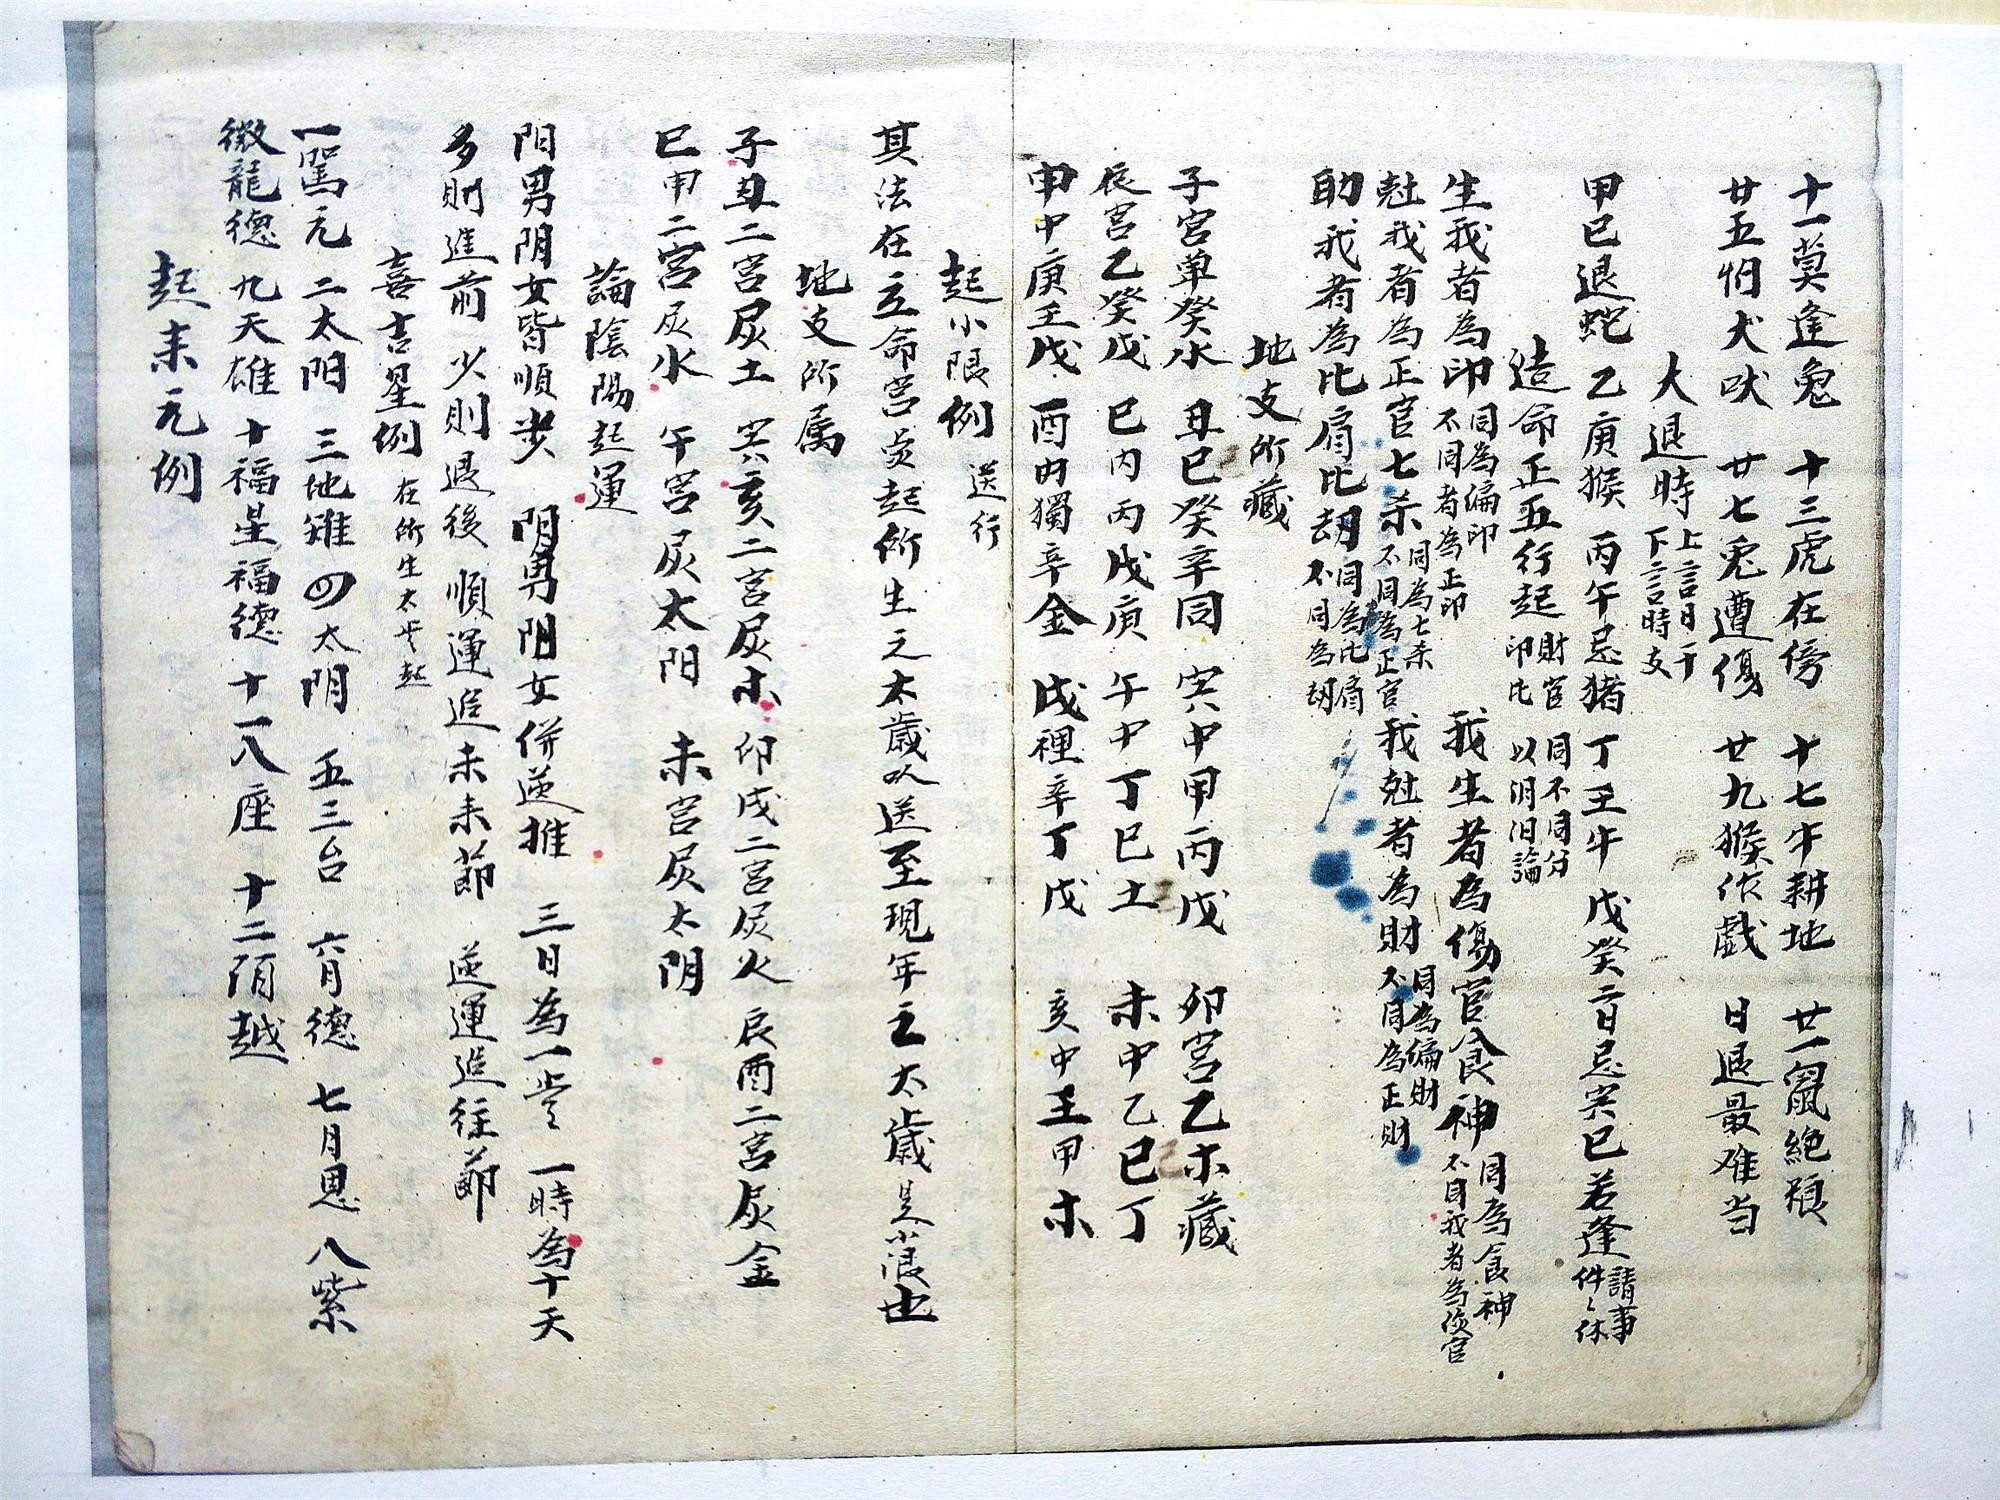 十一莫逢兔 十三虎在傍 十七牛耕地 廿一鼠絶粮
廿五怕犬吠 廿七兎遭傷 廿九猴作戲 日退最难当
大退時 上言日干 下言時支
甲己退蛇 乙庚猴 丙午忌猪 丁壬午 戊癸二日忌寅巳 若逢 請事 件〻休
造命正五行起 財官 印比 同不同分 以陰阳論
生我者為印 同為偏印 不同者為正印 我生者為傷官食神 同為食神 不同我者為傷官
尅我者為正官七杀 同為七杀 不同為正官 我尅者為財 同為偏財 不同為正財
助我者為比肩比刼 同為比肩 不同為刼
地支所藏
子宮单癸水 丑己癸辛同 寅中甲丙戊 卯宮乙木藏
辰宮乙癸戊 巳内丙戊庚 午中丁巳土 未中乙巳丁
申中庚壬戊 酉内獨辛金 戊裡辛丁戊 亥中壬甲木
起小限例 送行
其法在立命宮上起所生之太歲以送至現年之太歲是小限也
地支所属
子丑二宮属土 寅亥二宮属木 卯戌二宮属火 辰酉二宮属金
巳申二宮属水 午宮属太阳 未宮属太阴
論陰陽起運
阳男阴女皆順步 阴男阳女併逆推 三日為一歲 一時為十天
多則進前 少則退後 順運追未来節 逆運追往節
喜吉星例 在所生太岁起
一駕元 二太阳 三地雄 四太阴 五三台 六月德 七月恩 八紫
微龍德 九天雄 十福星福德 十一八座 十二陌越
起未元例